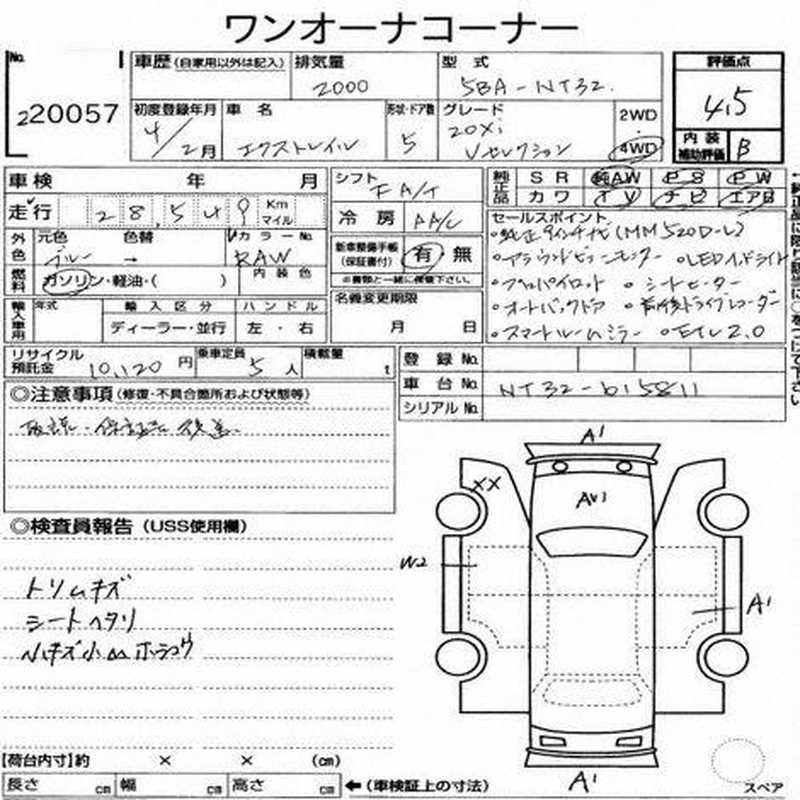 ワンオーナコーナー
No. 220057
車歴 (自家用以外は記入) 排気量 2000 型式 5BA-NT32
評価点 4.5
初度登録年月 4/2月 車名 エクストレイル 形状・ドア数 5 グレード 20Xi Vセレクション 2WD 4WD
内装補助評価 B
車検 年 月
シフト FA/T
純正品 SR 純AW PS PW
カワ TV ナビ エアB
走行 28,549 Km マイル
冷房 AA/C
セールスポイント
・純正9インチナビ(MM520D-L)
外色 元色 ブルー 色替 → カラーNo. RAW 内装色
新車整備手帳(保証書付) 有・無
※書類と一緒に掲載下さい。
・アラウンドビューモニター ・LEDヘッドライト
燃料 ガソリン・軽油・( )
・プロパイロット ・シートヒーター
輸入車用 年式 輸入区分 ハンドル
名義変更期限
・オートバックドア ・前後ドライブレコーダー
ディーラー・並行 左・右
月 日
・スマートルームミラー ・ETC2.0
リサイクル預託金 10,120円 乗車定員 5人 積載量 t
登録No.
車台No. NT32-615811
シリアルNo.
◎注意事項(修復・不具合箇所および状態等)
取説・保証書 後送
◎検査員報告(USS使用欄)
トリムキズ
シートヘタリ
A1
XX
AU1
W2
A1
A1
【荷台内寸】約 × × (cm)
長さ cm 幅 cm 高さ cm ←(車検証上の寸法)
スペア